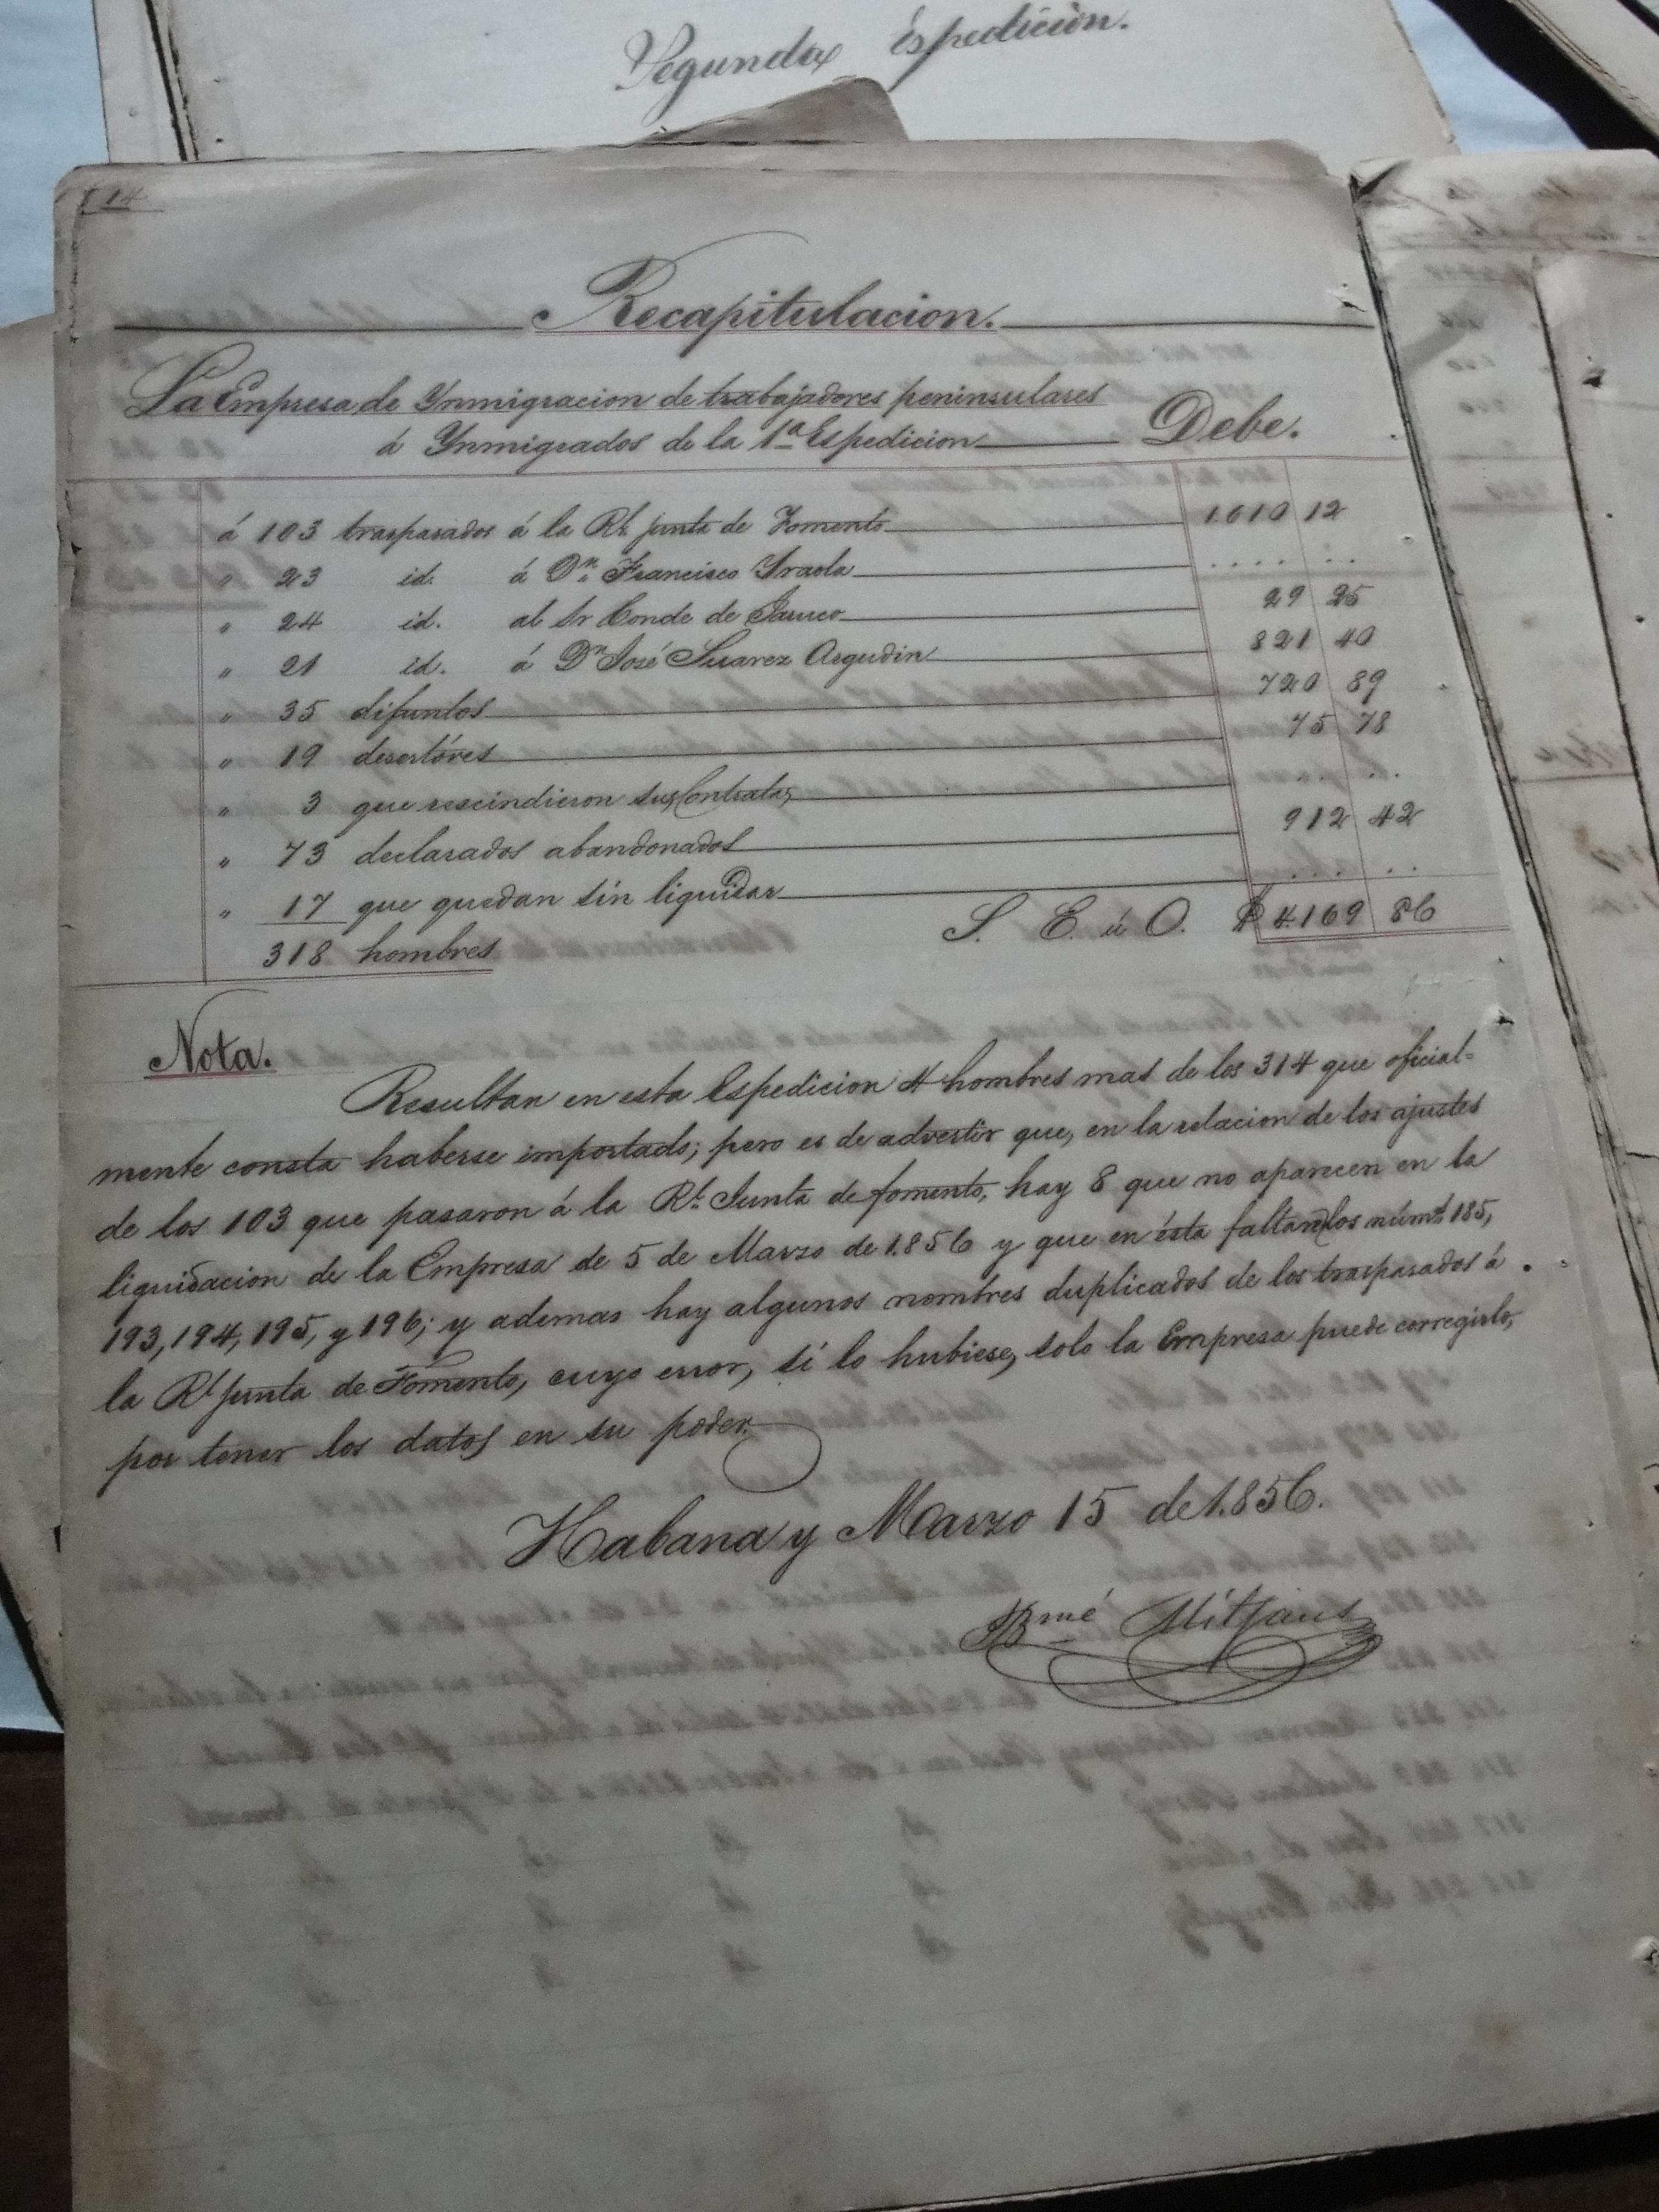 Segunda Espedición.
14
Recapitulacion.
La Empresa de Ynmigracion de trabajadores peninsulares
á Ynmigrados de la 1ª Espedicion Debe.
á 103 traspasados á la Rl. junta de Fomento 1.610 12
" 23 id. á Dn. Francisco Yraola .... ..
" 24 id. al Sr Conde de Jaruco 29 25
" 21 id. á Dn José Suarez Argudin 821 40
" 35 difuntos 720 89
" 19 desertóres 75 78
" 3 que rescindieron sus Contratas ... ..
" 73 declarados abandonados 912 42
" 17 que quedan sin liquidar ... ..
318 hombres S. E. ú O. $ 4.169 86
Nota.
Resultan en esta Espedicion 4 hombres mas de los 314 que oficial=
mente consta haberse importado; pero es de advertir que, en la relacion de los ajustes
de los 103 que pasaron á la Rl. Junta de fomento, hay 8 que no aparecen en la
liquidacion de la Empresa de 5 de Marzo de 1.856 y que en ésta faltan los núms 185,
193, 194, 195, y 196; y ademas hay algunos nombres duplicados de los traspasados á
la Rl junta de Fomento, cuyo error, si lo hubiese, solo la Empresa puede corregirlo,
por tener los datos en su poder.
Habana y Marzo 15 de 1.856.
Bmé Mitjans